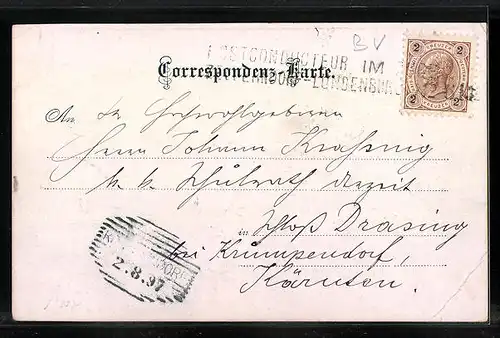 BV
POSTCONDUCTEUR IM
Correspondenz-Karte.
2 KREUZER 2
2 KREUZER 2
An Sr Hochwohlgeboren
Herrn Johann Krassnig
k. k. Schulrath derzeit
in Schloß Drasing
bei Krumpendorf,
Kärnten.
2.8.97